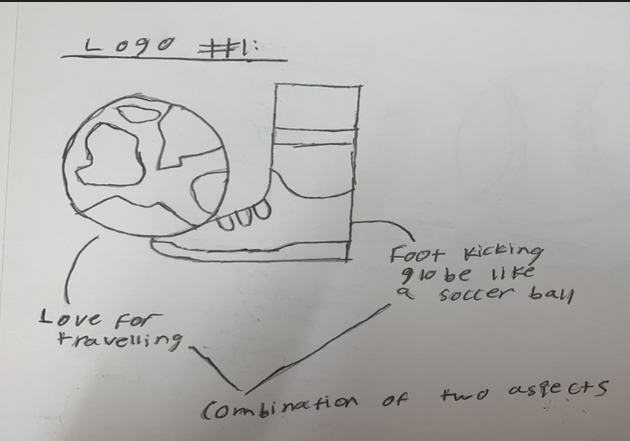 Logo #1:
Foot kicking
globe like
a soccer ball
Love for
travelling
Combination of two aspects